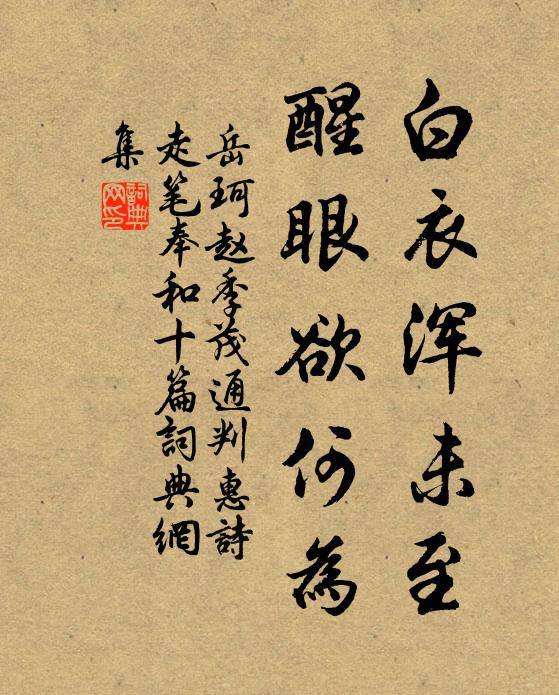 白衣浑未至
醒眼欲何為
岳珂赵季茂通判惠詩
走笔奉和十篇詞典網
集
詞典网印